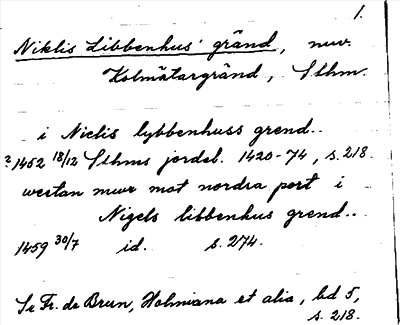 1.
Niklis Libbenhus' gränd, nuv.
Kolmätargränd, Sthm.
i Niclis lybbenhuss grend..
? 1452 18/12 Sthms jordeb. 1420-74, s. 218.
westan mwr mot nordra port i
Nigels libbenhus grend..
1459 30/7 id. s. 274.
Se Fr. de Brun, Holmiana et alia, bd 5,
s. 218.